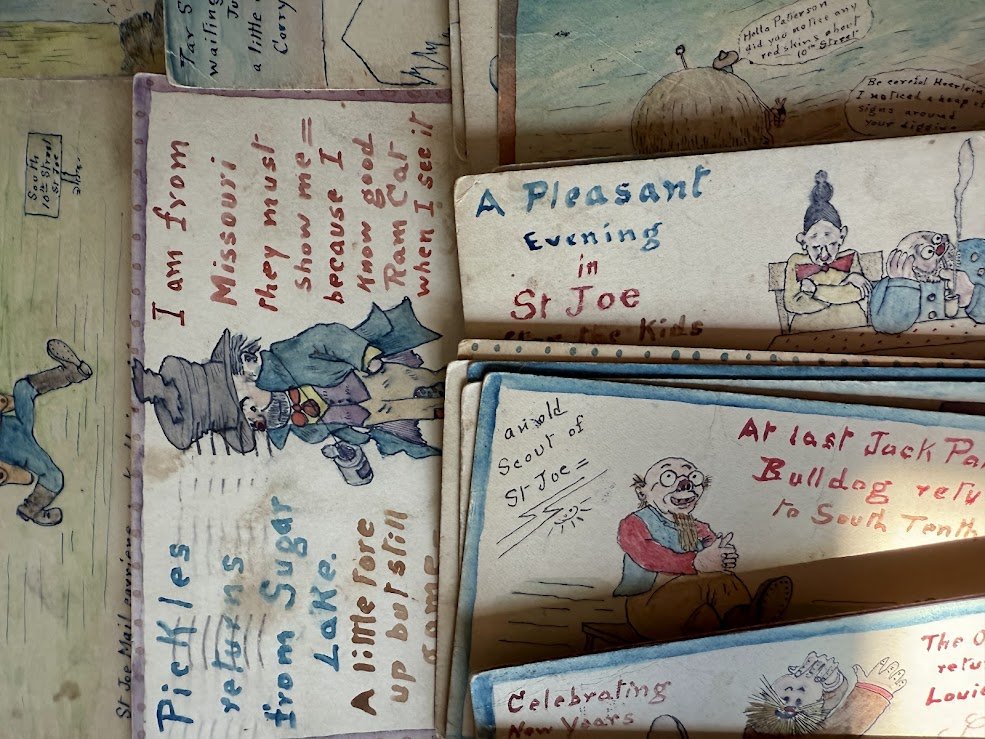 Tar S
waiting
Ju
a little
Corry
Hello Patterson
did you notice any
redskins about
10th Street
Be careful Haerlein
I noticed a heap of
signs around
your diggins
South
10th Street
St Joe
I am from
Missouri
they must
show me =
because I
know good
Ram Cat
when I see it
Pickles
returns
from Sugar
Lake.
A little tore
up but still
game
St Joe Mail
A Pleasant
Evening
in
St Joe
the Kids
an old
Scout of
St Joe =
At last Jack Pa
Bulldog retu
to South Tenth
Celebrating
New Years
The O
retu
Louis